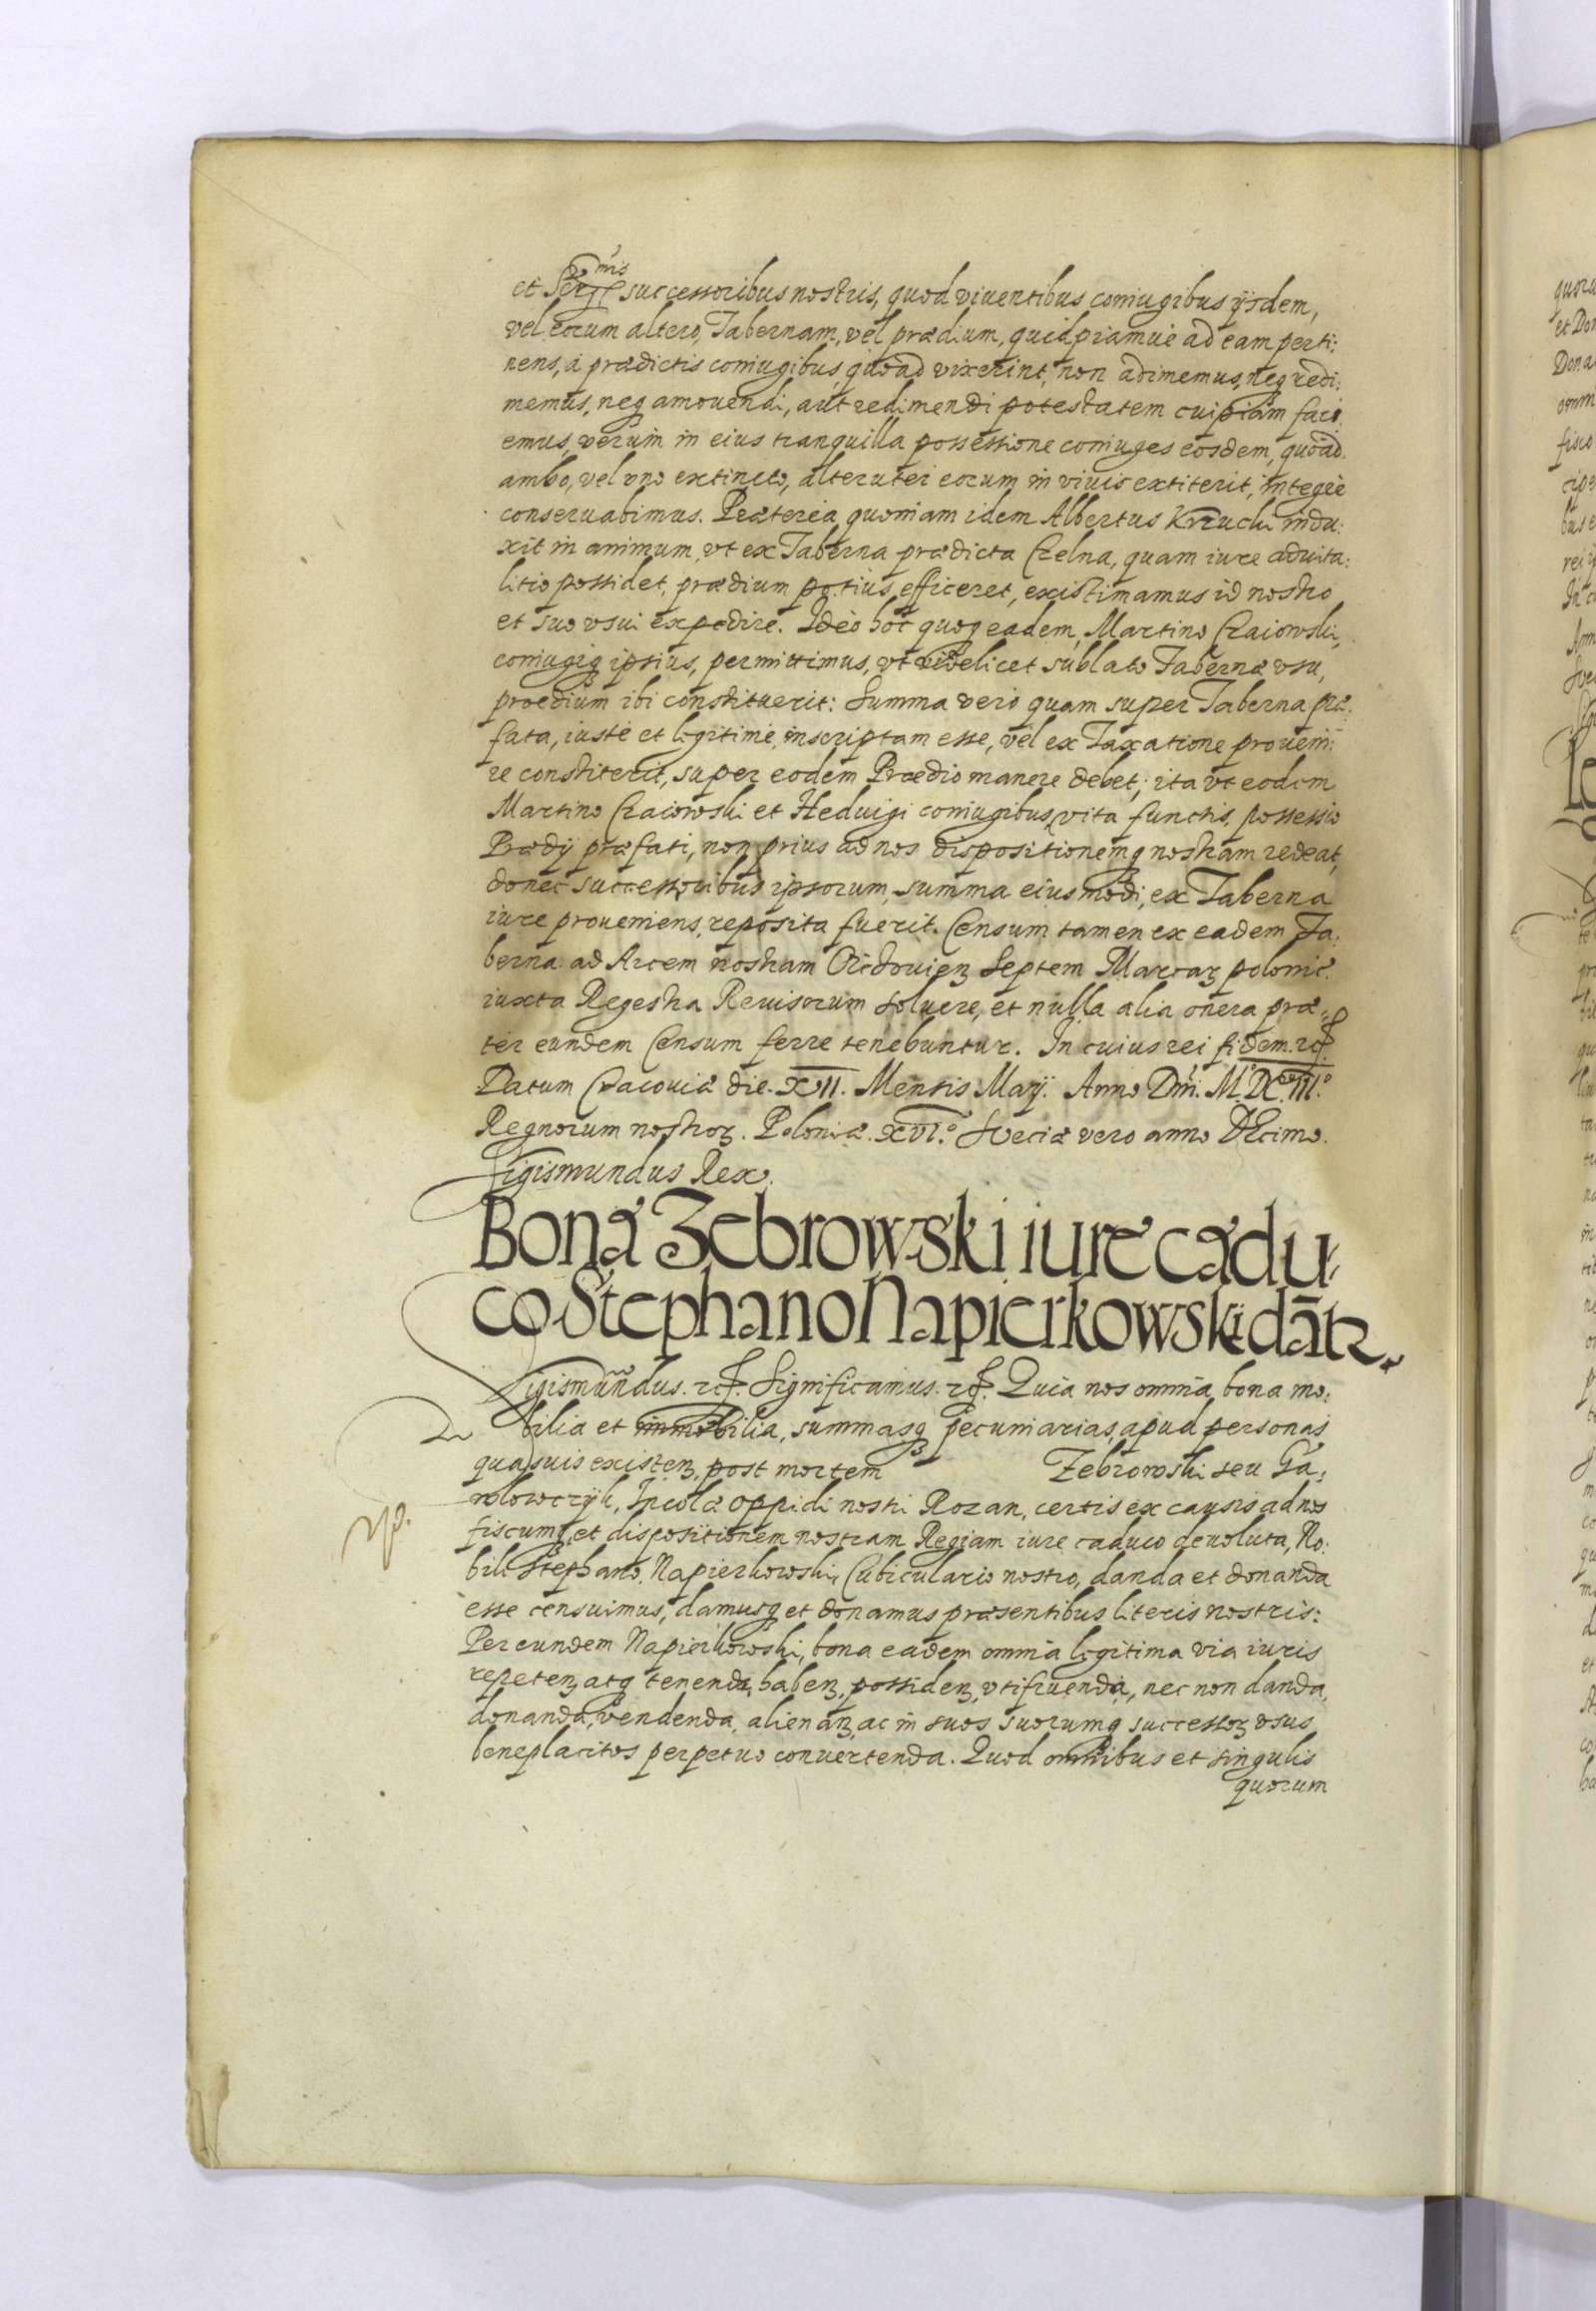 et Ser̃mis successoribus nostris, quod viventibus coniugibus ijsdem,
vel eorum altero, Tabernam, vel prædium, quidpiamuè ad eam perti:
nens, à prædictis coniugibus, quoad vixerint, non adimemus, neq redi:
memus, neq amouendi, aut redimendi potestatem cuipiam faci
emus, verùm in eius tranquilla possessione coniuges eosdem, quoad
ambo, vel vno extincto, alteruter eorum in viuis extiterit, integrè
conseruabimus. Præterea quoniam idem Albertus indu:
xit in animum, vt ex Taberna prædicta Czelna, quam iure aduita:
litio possidet, prædium potius efficeret, existimamus id nostro
et suo vsui expedire. Ideò hoc quoq eadem, Martino Czaiowski,
coniugiq ipsius, permittimus, vt videlicet sublato Tabernæ vsu,
prædium ibi constituerit: Summa verò quam super Taberna præ:
fata, iustè et legitimè inscriptam esse, vel ex Taxatione proueni:
re constiterit, super eodem Prædio manere debet; ita vt eodem
Martino Czaiowski et Heduigi coniugibus vita functis, possessio
Prædij præfati, non prius ad nos dispositionemq nostram redeat,
donec successoribus ipsorum, summa eiusmodi, ex Taberna
iure proueniens, reposita fuerit. Censum tamen ex eadem Ta:
berna ad Arcem nostram septem Marcaz polonic.
iuxta Regestra Reuisorum soluere, et nulla alia onera præ:
ter eundem Censum ferre tenebuntur. In cuius rei fidem. rc.
Datum Cracouiæ die. XVII. Mensis Maij. Anno Dni. M.DC.III.o
Regnorum nostroz. Poloniæ. XVI.o Sueciæ vero anno DEcimo.
Sigismundus Rex.
Bona Zebrowski iure cadu
co Stephano Napierkowski dātr.
Sigismundus. rc. Significamus. rc. Quia nos omnia bona mo:
bilia et immobilia, summasq pecuniarias, apud personas
quasuis existenz, post mortem Zebrowski seu Ga:
wlowczyk, Incolæ oppidi nostri Rozan, certis ex causis ad nos
fiscumq et dispositionem nostram Regiam iure caduco deuoluta, No:
bili Stephano Napierkowski, Cubiculario nostro, danda et donanda
esse censuimus, damusq et donamus præsentibus literis nostris:
Per eundem Napierkowski, bona eadem omnia legitima via iuris
repetenz atq tenenda, habenz, possidenz, vtifruenda, nec non danda,
donanda, vendenda, alienanz, ac in suos suorumq successoz vsus
beneplacitos perpetuo conuertenda. Quod omnibus et singulis
quorum